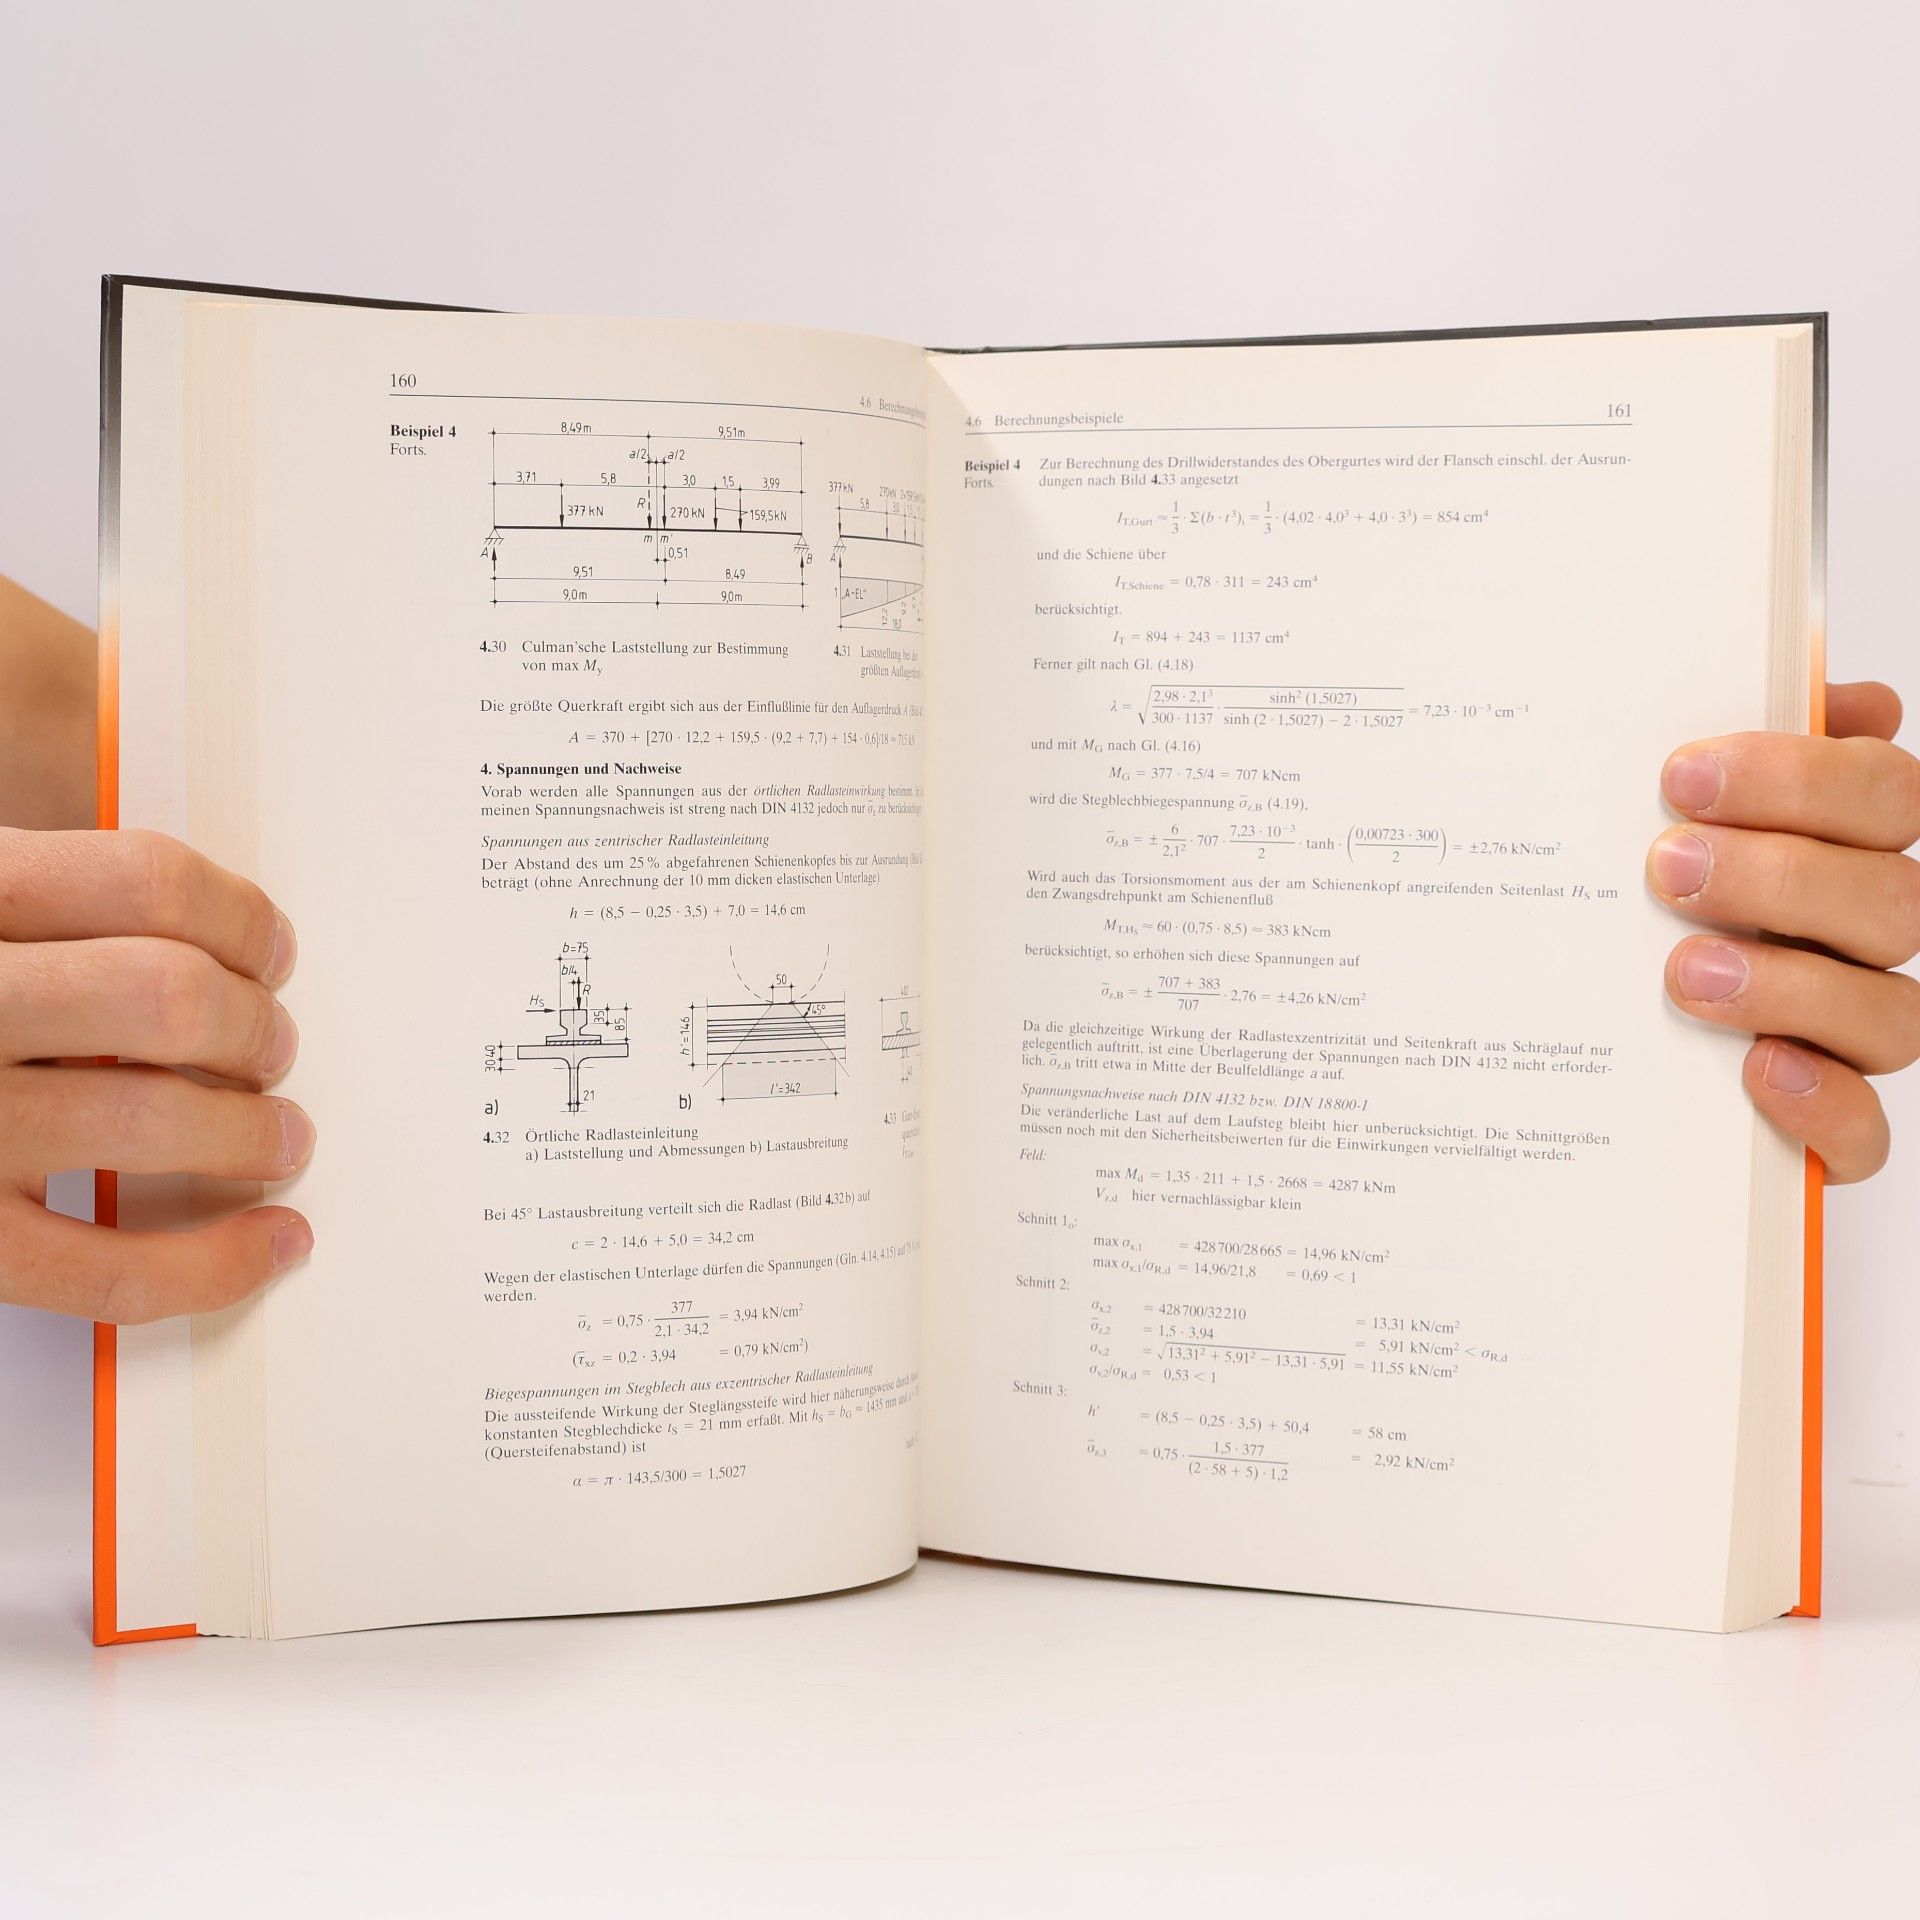 160
4.6 Berechnungsbeispiele
Beispiel 4
Forts.
8,49m 9,51m
a/2 a/2
3,71 5,8 3,0 1,5 3,99
377kN R 270kN 159,5kN
m m'
A 0,51 B
9,51 8,49
9,0m 9,0m
377kN 270kN
5,8 3,0
A
1 „A-EL"
12,2 9,2
18,0
4.30 Culman'sche Laststellung zur Bestimmung
von max My
4.31 Laststellung bei der
größten
Die größte Querkraft ergibt sich aus der Einflußlinie für den Auflagerdruck A
A = 370 + [270 · 12,2 + 159,5 · (9,2 + 7,7) + 154 · 0,6]/18 ≈ 715 kN
4. Spannungen und Nachweise
Vorab werden alle Spannungen aus der örtlichen Radlasteinwirkung bestimmt.
meinen Spannungsnachweis ist streng nach DIN 4132 jedoch nur σ̄z zu
Spannungen aus zentrischer Radlasteinleitung
Der Abstand des um 25 % abgefahrenen Schienenkopfes bis zur Ausrundung
beträgt (ohne Anrechnung der 10 mm dicken elastischen Unterlage)
h = (8,5 − 0,25 · 3,5) + 7,0 = 14,6 cm
b=75
b/4
R
Hs
35 85
30 40
21
a)
50
45°
h'=146
l'=342
b)
4.32 Örtliche Radlasteinleitung
a) Laststellung und Abmessungen b) Lastausbreitung
4.33
Bei 45° Lastausbreitung verteilt sich die Radlast (Bild 4.32b) auf
c = 2 · 14,6 + 5,0 = 34,2 cm
Wegen der elastischen Unterlage dürfen die Spannungen (Gln. 4.14, 4.15) auf 75 %
werden.
σ̄z = 0,75 · 377 / (2,1 · 34,2) = 3,94 kN/cm²
(τ̄xz = 0,2 · 3,94 = 0,79 kN/cm²)
Biegespannungen im Stegblech aus exzentrischer Radlasteinleitung
Die aussteifende Wirkung der Steglängssteife wird hier näherungsweise durch
konstanten Stegblechdicke ts = 21 mm erfaßt. Mit hs = bG ≈ 1435 mm und
(Quersteifenabstand) ist
α = π · 143,5/300 = 1,5027
4.6 Berechnungsbeispiele 161
Beispiel 4 Zur Berechnung des Drillwiderstandes des Obergurtes wird der Flansch einschl. der Ausrun-
Forts. dungen nach Bild 4.33 angesetzt
IT,Gurt ≈ 1/3 · Σ(b · t³)i = 1/3 · (4,02 · 4,0³ + 4,0 · 3³) = 854 cm⁴
und die Schiene über
IT,Schiene = 0,78 · 311 = 243 cm⁴
berücksichtigt.
IT = 894 + 243 = 1137 cm⁴
Ferner gilt nach Gl. (4.18)
λ = √(2,98 · 2,1³ / (300 · 1137) · sinh² (1,5027) / (sinh (2 · 1,5027) − 2 · 1,5027)) = 7,23 · 10⁻³ cm⁻¹
und mit MG nach Gl. (4.16)
MG = 377 · 7,5/4 = 707 kNcm
wird die Stegblechbiegespannung σ̄z,B (4.19),
σ̄z,B = ± 6/2,1² · 707 · 7,23 · 10⁻³/2 · tanh · (0,00723 · 300/2) = ±2,76 kN/cm²
Wird auch das Torsionsmoment aus der am Schienenkopf angreifenden Seitenlast HS um
den Zwangsdrehpunkt am Schienenfluß
MT,Hs ≈ 60 · (0,75 · 8,5) ≈ 383 kNcm
berücksichtigt, so erhöhen sich diese Spannungen auf
σ̄z,B = ± (707 + 383)/707 · 2,76 = ±4,26 kN/cm²
Da die gleichzeitige Wirkung der Radlastexzentrizität und Seitenkraft aus Schräglauf nur
gelegentlich auftritt, ist eine Überlagerung der Spannungen nach DIN 4132 nicht erforder-
lich. σ̄z,B tritt etwa in Mitte der Beulfeldlänge a auf.
Spannungsnachweise nach DIN 4132 bzw. DIN 18800-1
Die veränderliche Last auf dem Laufsteg bleibt hier unberücksichtigt. Die Schnittgrößen
müssen noch mit den Sicherheitsbeiwerten für die Einwirkungen vervielfältigt werden.
Feld:
max Md = 1,35 · 211 + 1,5 · 2668 = 4287 kNm
Vz,d hier vernachlässigbar klein
Schnitt 1o:
max σx,1 = 428700/28665 = 14,96 kN/cm²
max σx,1/σR,d = 14,96/21,8 = 0,69 < 1
Schnitt 2:
σx,2 = 428700/32210 = 13,31 kN/cm²
σ̄z,2 = 1,5 · 3,94 = 5,91 kN/cm² < σR,d
σv,2 = √(13,31² + 5,91² − 13,31 · 5,91) = 11,55 kN/cm²
σv,2/σR,d = 0,53 < 1
Schnitt 3:
h' = (8,5 − 0,25 · 3,5) + 50,4 = 58 cm
σ̄z,3 = 0,75 · 1,5 · 377 / ((2 · 58 + 5) · 1,2) = 2,92 kN/cm²